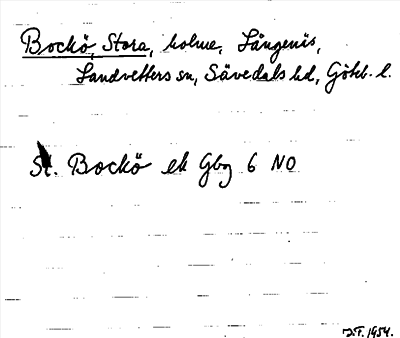 Bockö, Stora, holme, Långenäs,
Landvetters sn, Sävedals hd, Göteb. l.
St. Bockö ek Gbg 6 NO
J.T. 1954.